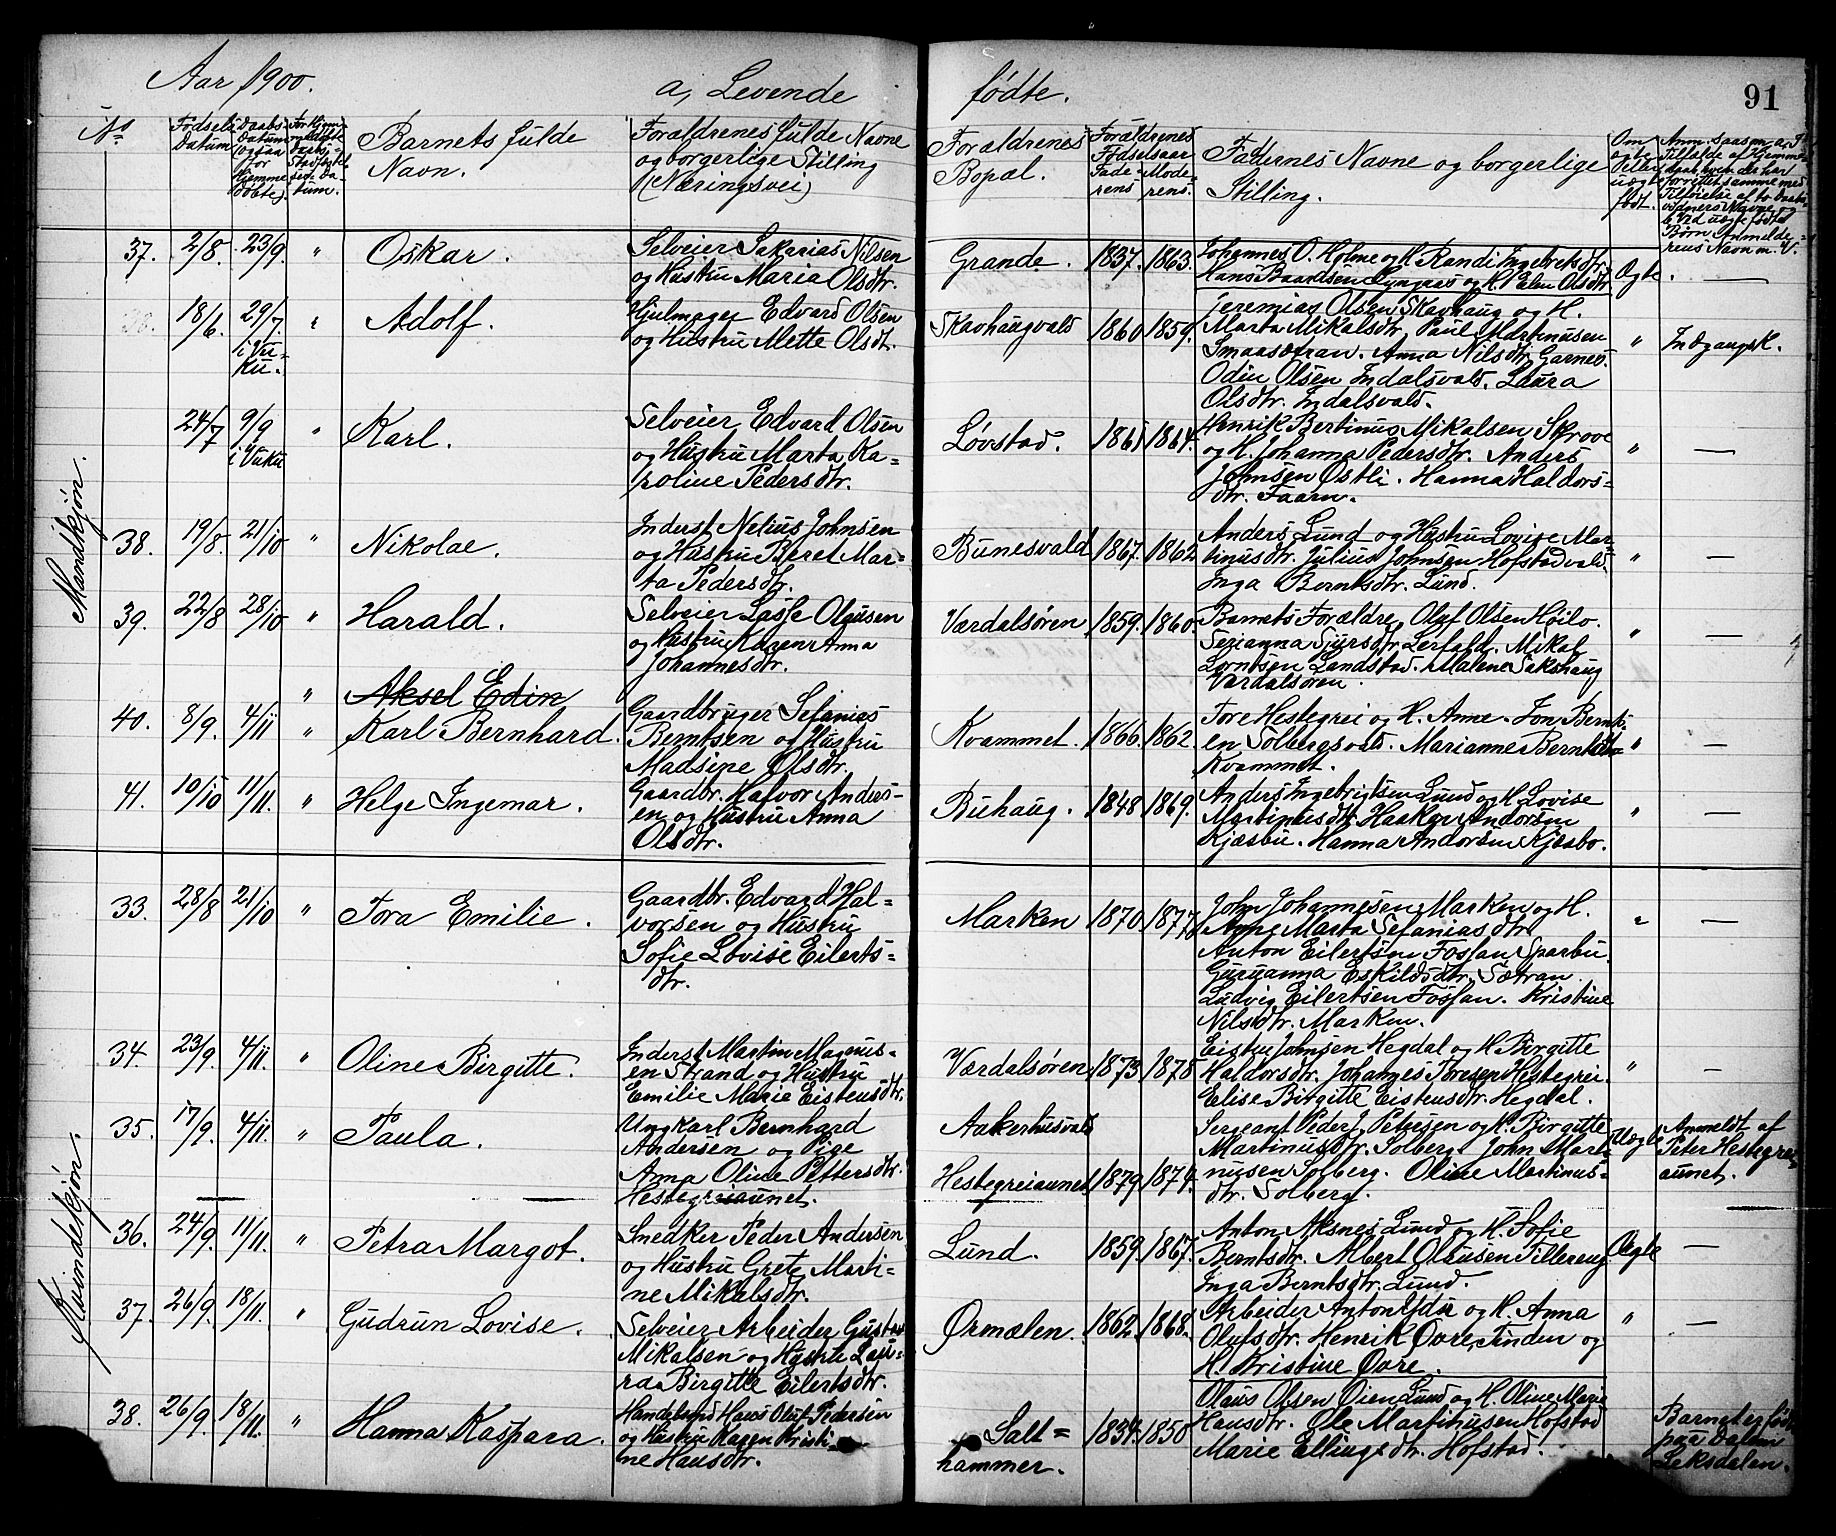 Aar 1900.
a, Levende
fødte.
91
No
Fødsels
Datum
Daabs-
Datum
(ogsaa
for
Hjemme
døbte)
For Hjem-
medøbte
Daabs-
Stadfæstel
sen Da-
tum.
Barnets fulde
Navn.
Forældrenes fulde Navne
og borgerlige Stilling
(Næringsvei)
Forældrenes
Bopæl.
Forældrenes
Fødselsaar
Fade-
rens
Mode-
rens.
Faddernes Navne og borgerlige
Stilling.
Om
ægte
eller
uægte
født.
Anm. saasom a, I
Tilfælde af Hjemme-
daab, hvem der har
forrettet samme med
Tilføielse af to Daabs-
vidners Navne.
b, Ved uægte fødte
Børn Anmelde-
rens Navn m. V.
Mandkjøn.
37.
2/8.
23/9.
"
Oskar.
Selveier Sakarias Nilsen
og Hustru Maria Olsdtr.
Grande.
1837.
1863.
Johannes O. Holme og H. Randi Ingebretsdtr.
Hans Baardsen Lyngaas og H. Elen Olsdtr.
Ægte.
—
38.
18/6.
29/7.
i Vu-
ku.
"
Adolf.
Hjulmager Edvard Olsen
og Hustru Mette Olsdt.
Skavhaugvald
1860
1859.
Jeremias Olsen Skavhaug og H.
Marta Mikalsdtr. Paul Martinusen
Smaasætran. Anna Nilsdtr. Garnes.
Odin Olsen Indalsvald. Laura
Olsdtr. Indalsvald.
"
Indgangsk.
24/7
9/9
i Vuku
"
Karl.
Selveier Edvard Olsen
og Hustru Marta Ka-
roline Pedersdtr.
Løvstad.
1865
1864.
Henrik Bertinus Mikalsen Skrove
og H. Johanna Pedersdtr. Anders
Johnsen Østli. Hanna Haldors-
dtr. Faarn.
"
—
38.
19/8.
21/10
"
Nikolae.
Inderst Nelius Johnsen
og Hustru Beret Mar-
ta Pedersdtr.
Bunesvald
1867.
1862.
Anders Lund og Hustru Lovise Mar-
tinusdtr. Julius Johnsen Hofstadvald.
Inga Berntsdtr. Lund.
"
—
39.
22/8
28/10
"
Harald.
Selveier Lasse Olausen
og Hustru Karen Anna
Johannesdtr.
Værdalsøren
1859.
1860.
Barnets Forældre, Olaf Olsen Høilo.
Serianna Sjursdtr. Lerfald. Mikal
Lorntsen Landstad. Malene Sakshaug
Værdalsøren.
"
—
"
Aksel Edin
40.
8/9.
4/11
"
Karl Bernhard.
Gaardbruger Sefanias
Berntsen og Hustru
Madsine Olsdtr.
Kvammet.
1866.
1862.
Tore Hestegrei og H. Anne. Jon Bernts-
en Solbergsvald. Marianne Berntsdtr
Kvammet.
"
—
41.
10/10
11/11.
"
Helge Ingemar.
Gaardbr. Halvor Anders-
en og Hustru Anna
Olsdtr.
Buhaug.
1848
1869.
Anders Ingebrigtsen Lund og H. Lovise
Martinusdtr. Haakon Andorsen
Kjæsbu. Hanna Andorsen Kjæsbo.
"
—
Kvindekjøn.
33.
28/8
21/10
"
Tora Emilie.
Gaardbr. Edvard Hal-
vorsen og Hustru
Sofie Lovise Eilerts-
dtr.
Marken
1870
1877.
John Johannesen Marken og H.
Anne Marta Sefaniasdtr.
Anton Eilertsen Fossan Sparbu.
Guruanna Eskildsdtr. Sætran
Ludvig Eilertsen Fossan. Kristine
Nilsdtr. Marken.
"
—
34.
23/9.
4/11.
"
Oline Birgitte.
Inderst Martin Magnus-
en Strand og Hustru
Emilie Marie Eistensdtr.
Værdalsøren
1873
1878
Eisten Johnsen Hegdal og H. Birgitte
Haldorsdtr. Johannes Toresen Hestegrei.
Elise Birgitte Eistensdtr. Hegdal.
"
—
35.
17/9.
4/11.
"
Paula.
Ungkarl Bernhard
Andersen og Pige
Anna Oline Pettersdtr.
Hestegreiaunet.
Aakerhusvald
Hestegreiaunet
1879
1874.
Sergeant Peder J. Petersen og H. Birgitte
Martinusdtr. Solberg. John Marti-
nusen Solberg. Oline Martinus-
dtr. Solberg.
Uægte
Anmeldt af
Peter Hestegrei-
aunet.
36.
24/9.
11/11.
"
Petra Margot.
Snedker Peder Andersen
og Hustru Grete Marti-
ne Mikalsdtr.
Lund.
1859.
1867.
Anton Aksnes Lund og H. Sofie
Berntsdtr. Albert Olausen Tillereng
Inga Berntsdtr. Lund.
Ægte
—
37.
26/9.
18/11.
"
Gudrun Lovise.
Selveier Arbeider Gustav
Mikalsen og Hustru Lau-
ra Birgitte Eilertsdtr.
Ørmælen.
1862.
1868.
Arbeider Anton Ydse og H. Anna
Olufsdtr. Henrik Ovre, Tinden og
H. Kristine Ovre.
"
—
38.
26/9.
18/11.
"
Hanna Kaspara.
Handelsmd Hans Oluf Pedersen
og Hustru Karen Kristi-
ne Hansdtr.
Salt-
hammer.
1834.
1858
Olaus Olsen Øien Lund og H. Oline Marie
Hansdtr. Ole Martinusen Hofstad
Marie Ellingsdtr. Hofstad.
Barnet er født
paa Dalem
Leksdalen.